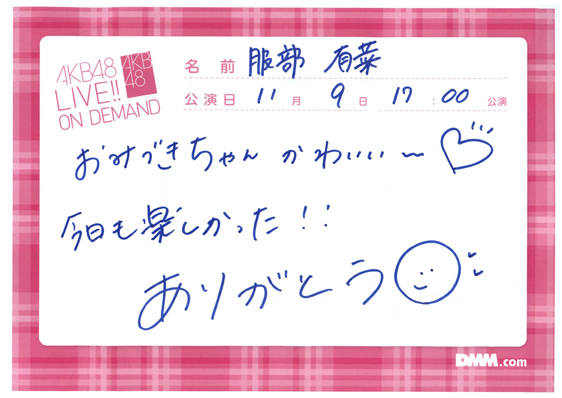 AKB48
LIVE!!
ON DEMAND
AKB
48
名前 服部 有菜
公演日 11月 9日 17:00 公演
おみづきちゃん かわいい〜♡
今日も楽しかった!!
ありがとう
DMM.com